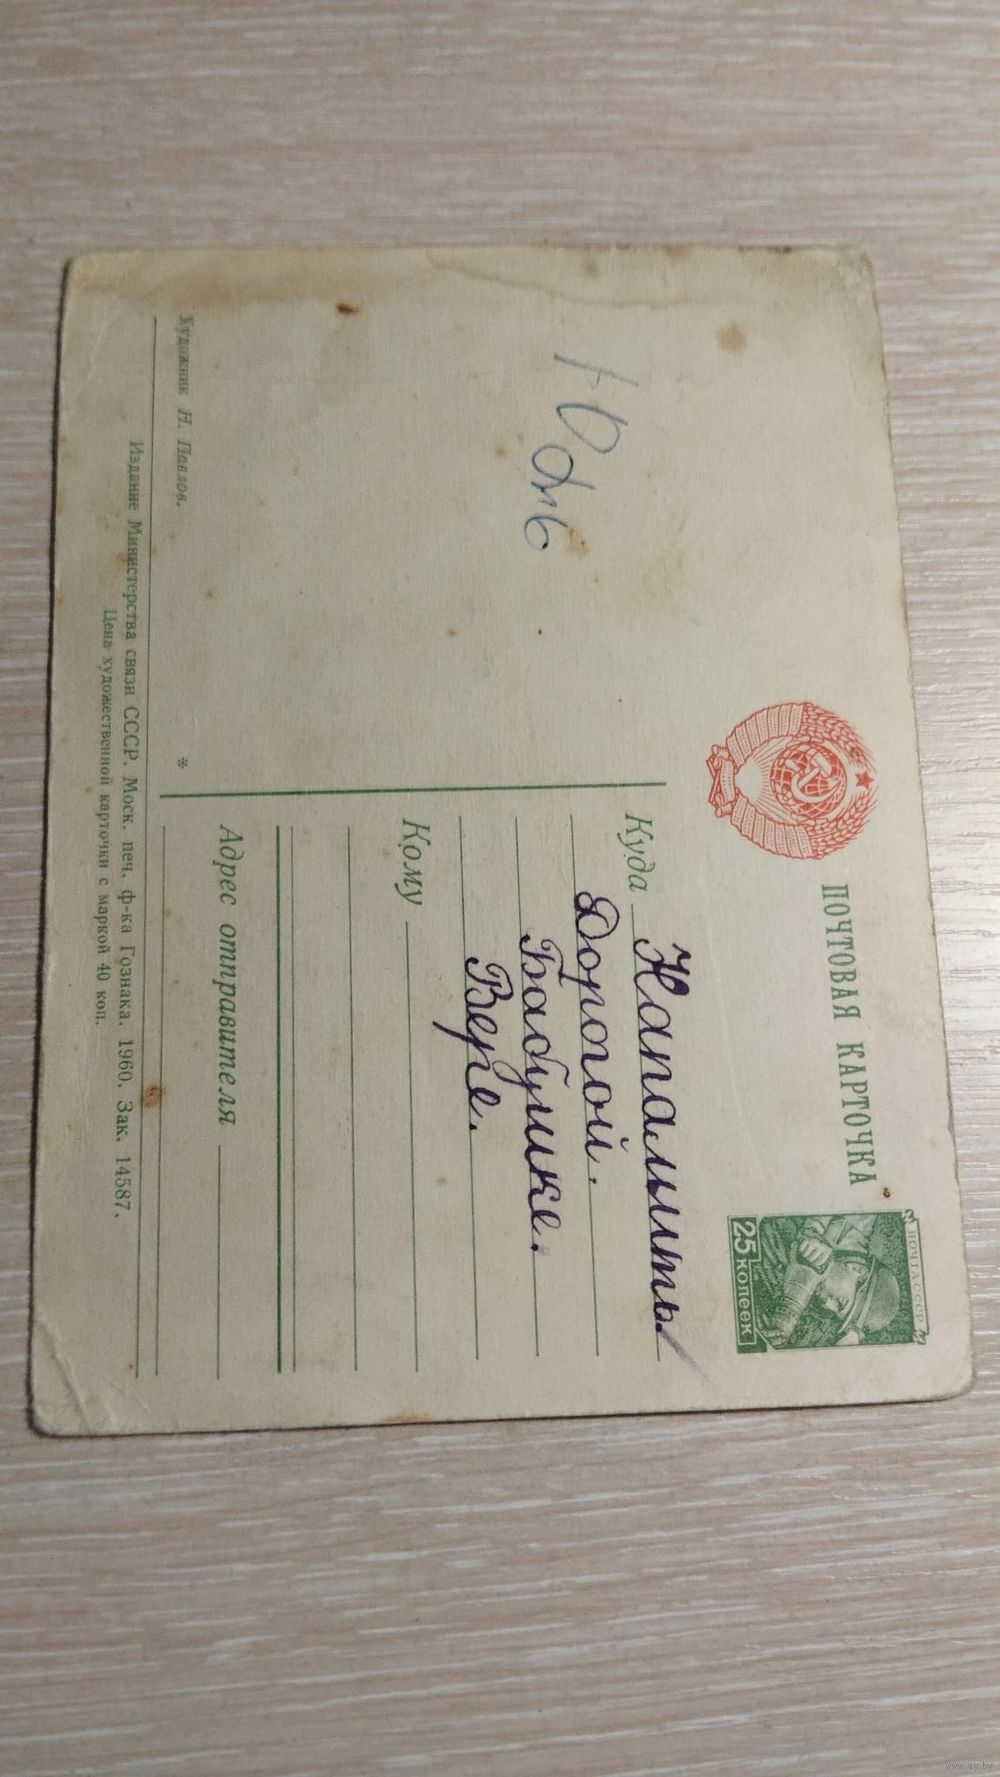 ПОЧТОВАЯ КАРТОЧКА
ПОЧТА СССР
25 копеек
Куда
На память
Дорогой.
Бабушке.
Вере.
Кому
Адрес отправителя
*
Художник Н. Павлов.
Издание Министерства связи СССР. Моск. печ. ф-ка Гознака. 1960. Зак. 14587.
Цена художественной карточки с маркой 40 коп.
www.ay.by